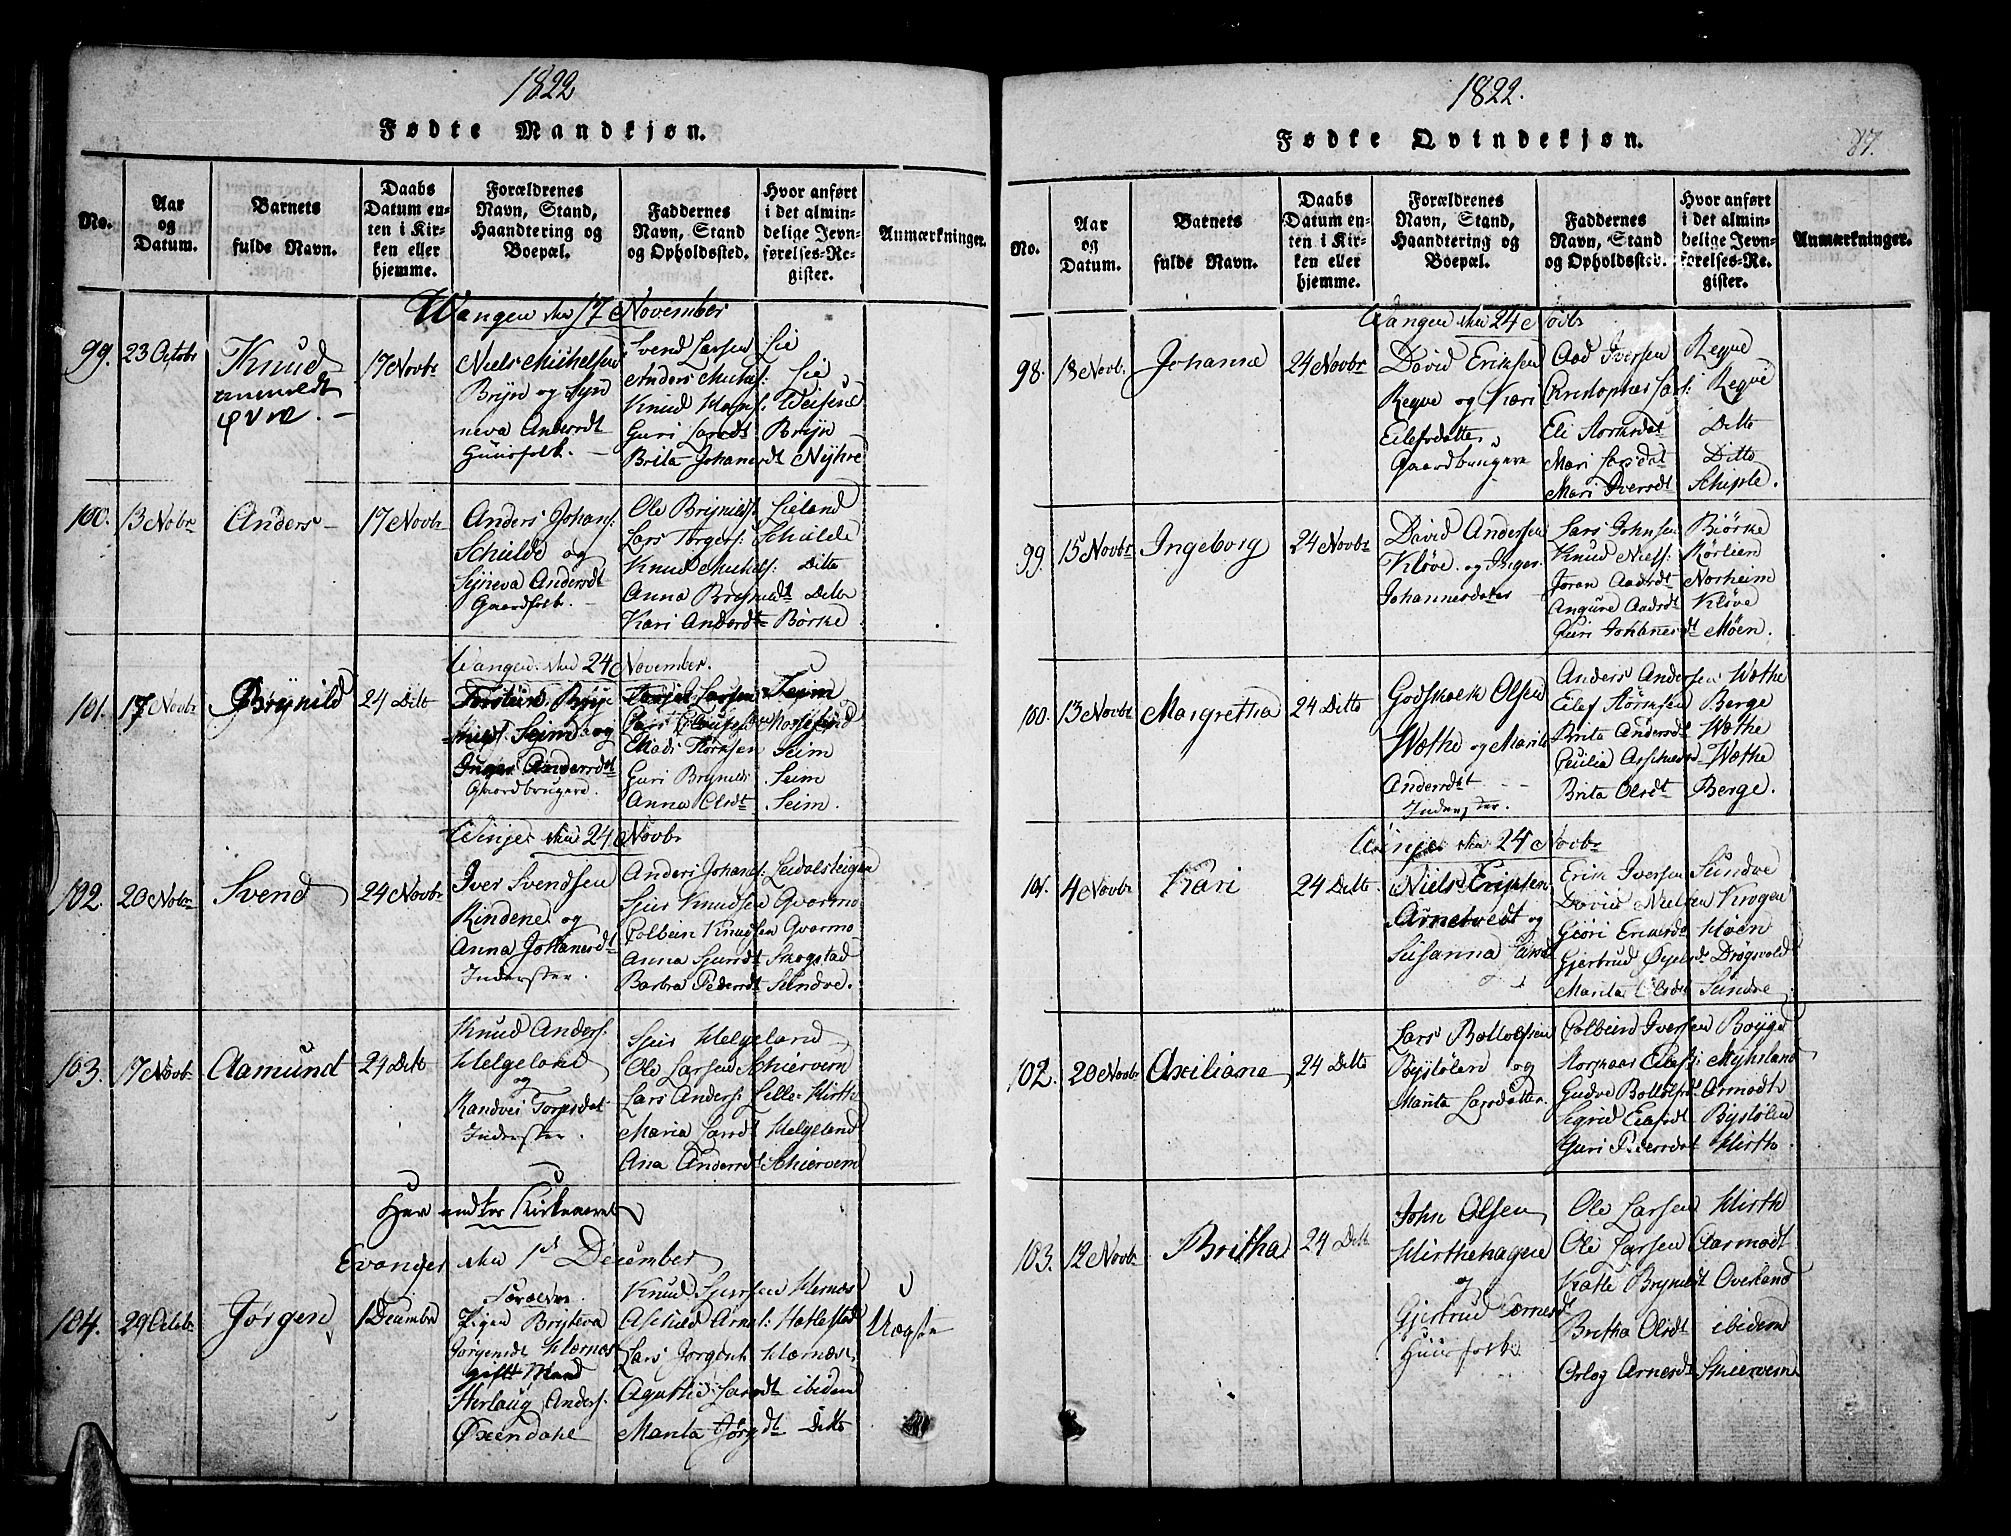 1822
Fødte Mandkjøn.
No.
Aar
og
Datum.
Barnets
fulde Navn.
Daabs
Datum en-
ten i Kir-
ken eller
hjemme.
Forældrenes
Navn, Stand,
Haandtering og
Boepæl.
Faddernes
Navn, Stand
og Opholdssted.
Hvor anført
i det almin-
delige Jevn-
førelses-Re-
gister.
Anmærkninger.
Wangen den 17 November
99.
23 Octobr
Knud
17 Novbr
Niels Michelsen
Bryn og Syn
neva Andersdt
Huusfolk.
Svend Larsen Lie
Anders Michels: Lie
Knud
Guri Larsdt Bryn
Brita Johansdt Nyhre
100.
13 Nobr
Anders
17 Novbr
Anders Johans:
Schulde og
Syneva Andersdt
Gaardfolk.
Ole Brynilds: Lieland
Lars Torgers: Schulde
Knud Michels: Ditto
Anna Brynildt Ditto
Kari Andersdt Børke
Wangen den 24 November.
101.
17 Novbr
Brynild
24 Ditto
Torstein Bryn
Seim og
Inger Andersdt
Gaardbrugere.
Larsen Seim
Mads Storksen Seim
Guri Brynilds Seim
Anna Olsdt Seim.
Winje den 24 Novbr
102.
20 Nobr
Svend
24 Novbr
Iver Svendsen
Rindene og
Anna Johanesdt
Inderster.
Anders Johans: Leidalsteigen
Sjur Knudsen Gvarmo
Colbein Knudsen Gvarmo
Anna Sjursdt Skogstad
Barbra Pedersdt Sundve.
103.
17 Novb.
Aamund
24 Ditto
Knud Anders:
Helgeland
og
Randvei Torgsdat
Inderster.
Sjur Helgeland
Ole Larsen Schiervem
Lars Anders: Lille Hirthe
Maria Larsdt Helgeland
Ana Andersdt Schiervem
Her
Evanger den 1st December
104.
29 Octob
Jørgen
1 December
Forældre.
Pigen Bryteva
Jørgensdt Hernes
gift Mand
Herlaug Anders:
Øxendahl
Knud Sjursen Hernes
Aschild Arne: Hatlestad
Lars Jørgens Hernes
Agathe Larsdt ibidem
Marita Jørgdt Ditto
Uægte
1822.
Fødte Qvindekjøn.
87.
No.
Aar
og
Datum.
Barnets
fulde Navn.
Daabs
Datum en-
ten i Kir-
ken eller
hjemme.
Forældrenes
Navn, Stand,
Haandtering og
Boepæl.
Faddernes
Navn, Stand
og Opholdssted.
Hvor anført
i det almin-
delige Jevn-
førelses-Re-
gister.
Anmærkninger.
Wangen den 24 Novbr
98.
18 Novb.
Johanne
24 Novbr
David Eriksen
Reque og Kari
Eilefsdatter
Gaardbrugere
Aad Iversen Reque
Kristopher Lars: Reque
Eli Storksdat Ditto
Mari Larsdat Ditto
Mari Iversdt Schiple.
99.
15 Novbr
Ingeborg
24 Novbr
David Andersen
Kløve og Inger
Johannesdatter
Lars Johnsen Biørke
Knud Niels: Rørlien
Joran Aadsdt Norheim
Angune Aadsdt Kløve
Guri Johannesdt Møen.
100.
13 Novbr
Margretha
24 Ditto
Godskalk Olsen
Wethe og Marita
Andersdt
Inderster.
Anders Andersen Wethe
Eilef Størksen Berge
Brita Andersdt Wethe
Cicilia Wethe
Brita Olsdt Berge.
Winje den 24 Novbr
101.
4 Novbr
Kari
24 Ditto
Niels Eriksen
Arnetvedt og
Susanna
Erik Iversen Sundve
David Nielsen Krogen
Giøri Ericsdt Møen
Gjertrud Drøgsvold
Marita Olsdt Sundve
102.
20 Novbr
Axiliane
24 Ditto
Lars Botolvsen
Bystølen og
Marita Larsdatter
Colbein Iversen Bøyge
Eilefs: Myhrland
Gudve Botolfsdt Armodt
Sigrid Eilefsdt Bystølen
Guri Pedersdt Hirthe
103.
12 Novbr
Britha
24 Ditto
John Olsen
Hirthehagen
og
Gjertrud
Huusfolk
Ole Larsen Hirthe
Ole Larsen Aarmodt
Katle Brynildt Overland
Britha Olsdt ibidem
Orlog Arnesdt Schiervem